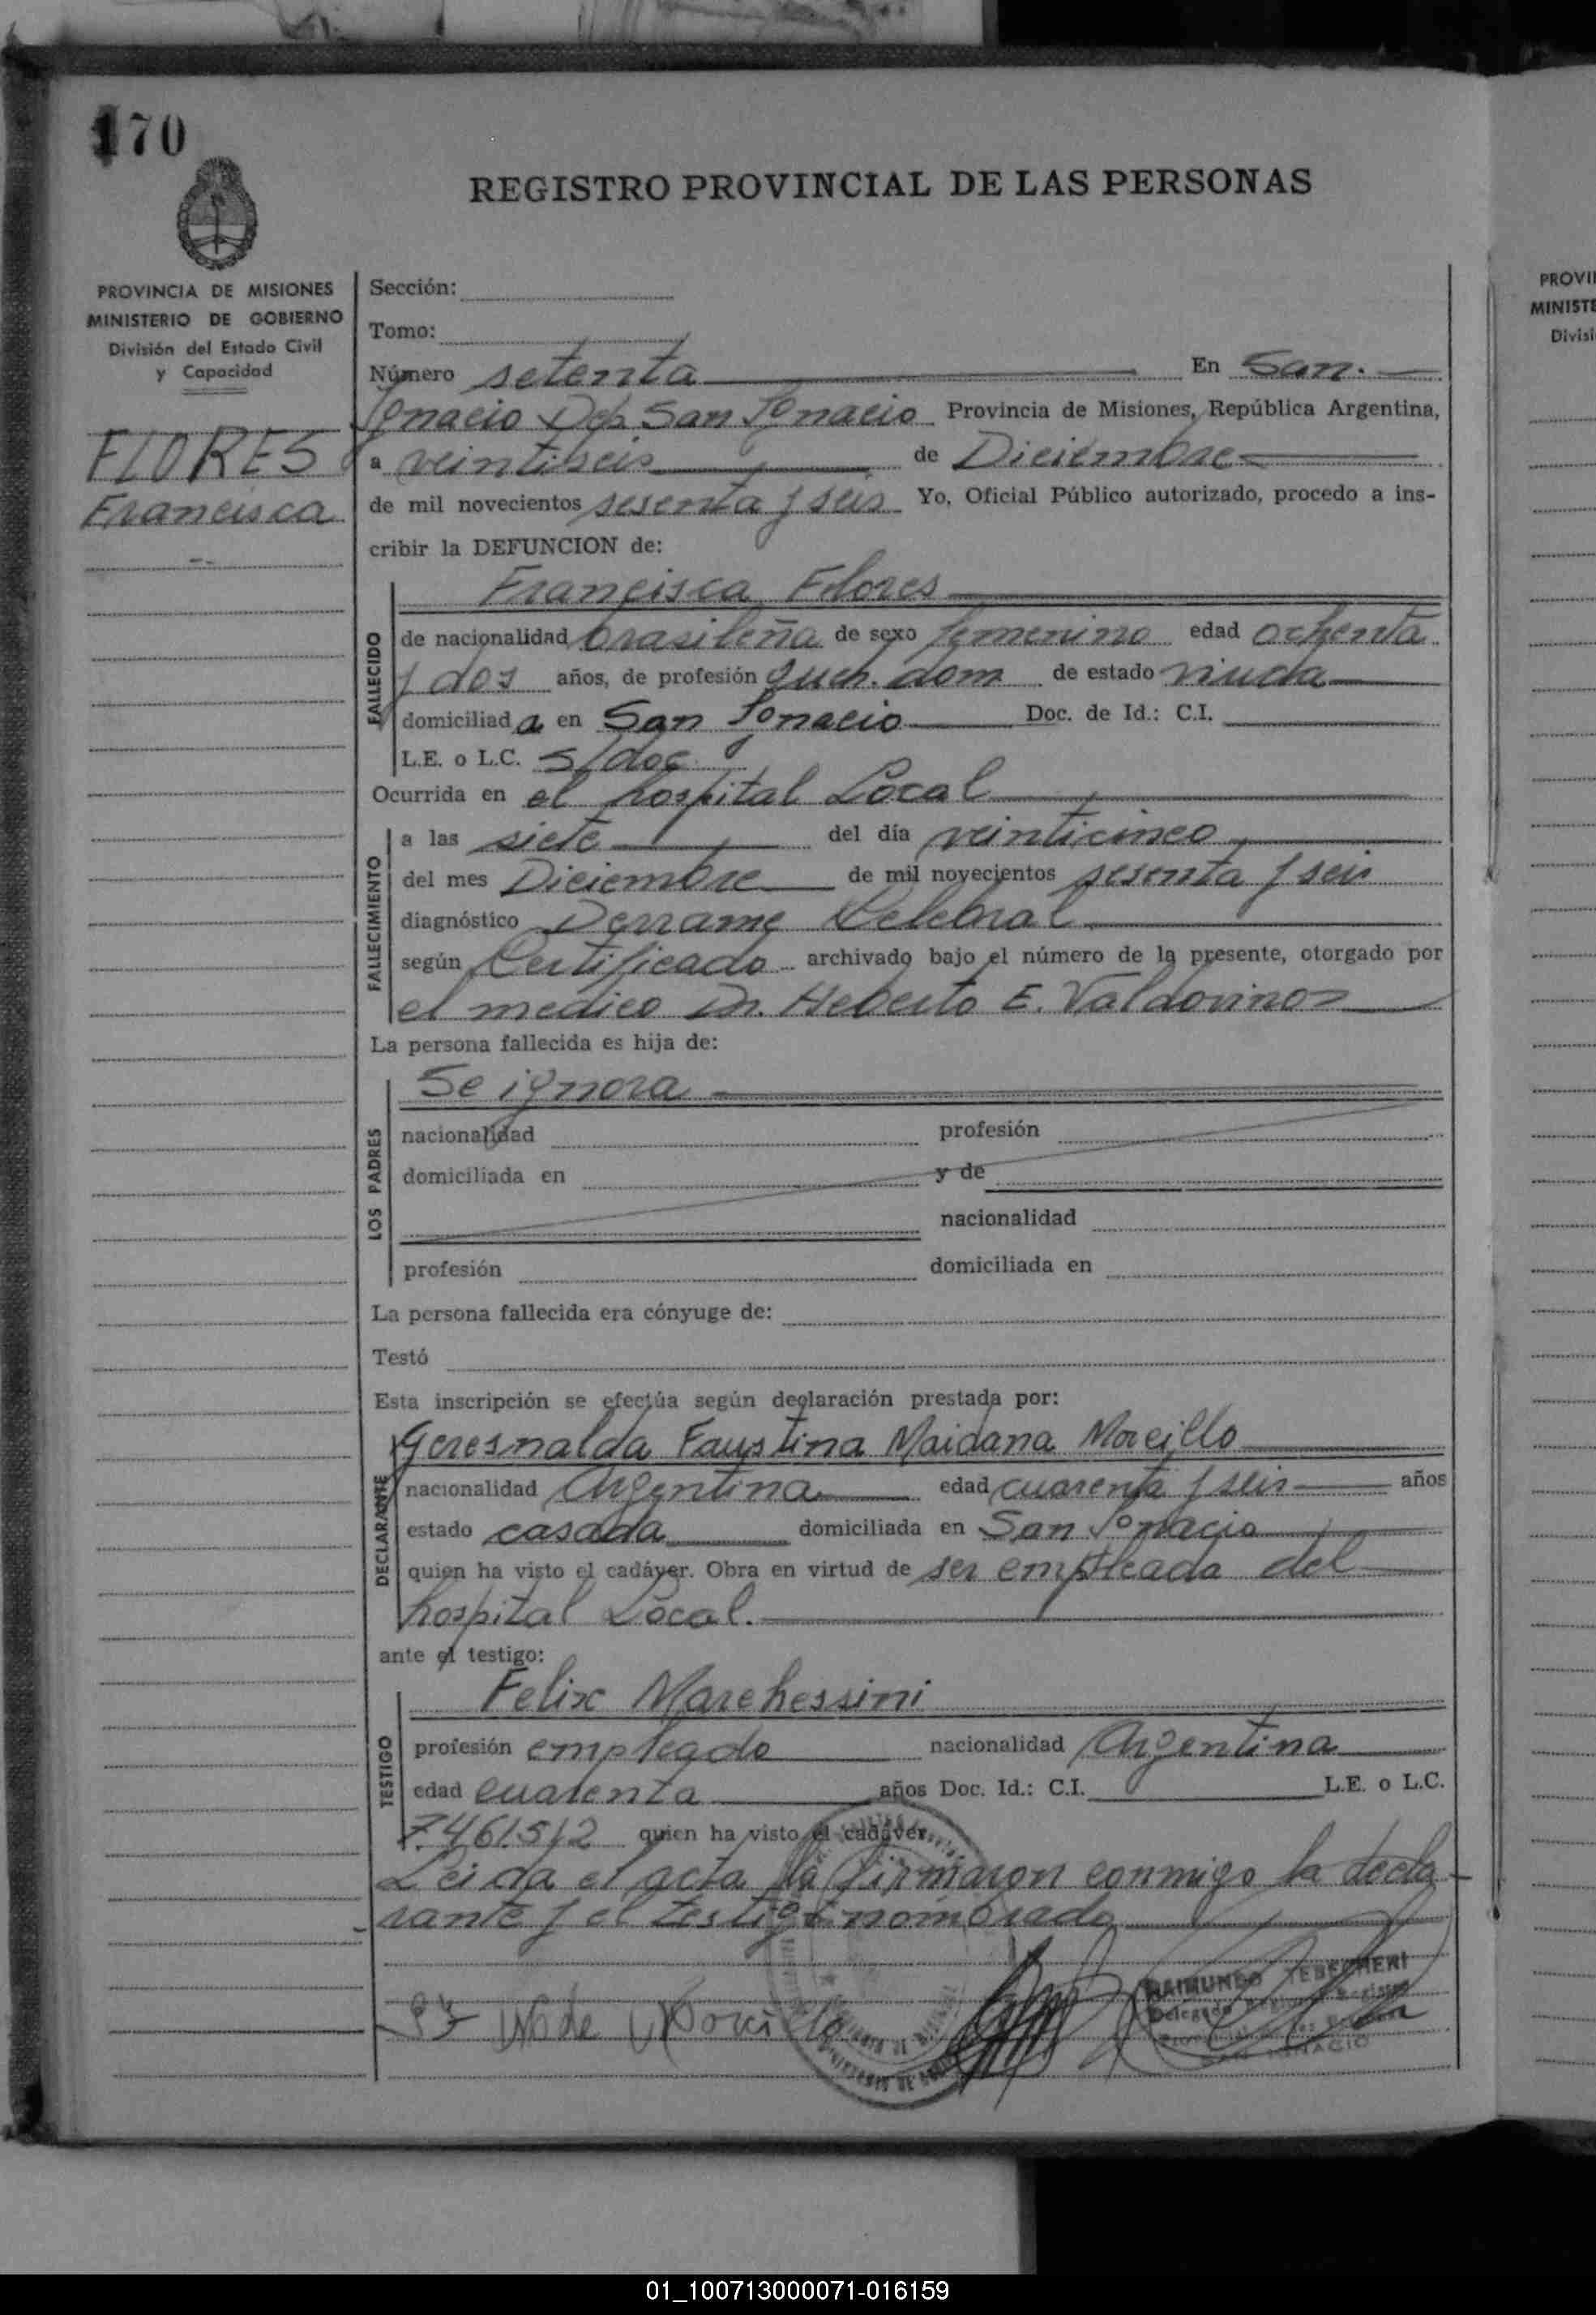 170
REGISTRO PROVINCIAL DE LAS PERSONAS
PROVINCIA DE MISIONES
MINISTERIO DE GOBIERNO
División del Estado Civil
y Capacidad
FLORES
Francisca
Sección:
Tomo:
Número setenta En San.
Ignacio Dep. San Ignacio Provincia de Misiones, República Argentina,
a veintiseis de Diciembre
de mil novecientos sesenta y seis Yo, Oficial Público autorizado, procedo a ins-
cribir la DEFUNCION de:
FALLECIDO
Francisca Flores
de nacionalidad brasileña de sexo femenino edad ochenta
y dos años, de profesión queh. dom de estado viuda
domiciliada en San Ignacio Doc. de Id.: C.I.
L.E. o L.C. s/doc.
Ocurrida en el hospital Local
FALLECIMIENTO
a las siete del día veinticinco
del mes Diciembre de mil novecientos sesenta y seis
diagnóstico Derrame Celebral
según Certificado archivado bajo el número de la presente, otorgado por
el medico Dr. Heberto E. Valdovinos
La persona fallecida es hija de:
LOS PADRES
Se ignora
nacionalidad profesión
domiciliada en y de
nacionalidad
profesión domiciliada en
La persona fallecida era cónyuge de:
Testó
Esta inscripción se efectúa según declaración prestada por:
DECLARANTE
Geresnalda Faustina Maidana Morcillo
nacionalidad Argentina edad cuarenta y seis años
estado casada domiciliada en San Ignacio
quien ha visto el cadáver. Obra en virtud de ser empleada del
hospital Local.
ante el testigo:
TESTIGO
Felix Marchessini
profesión empleado nacionalidad Argentina
edad cuarenta años Doc. Id.: C.I. L.E. o L.C.
7.461.512 quien ha visto el cadáver.
Leida el acta la firmaron conmigo la decla-
rante y el testigo nombrado
de Morcillo
RAIMUNDO
Delegado
SAN IGNACIO
PROVI
MINISTE
Divisi
01_100713000071-016159